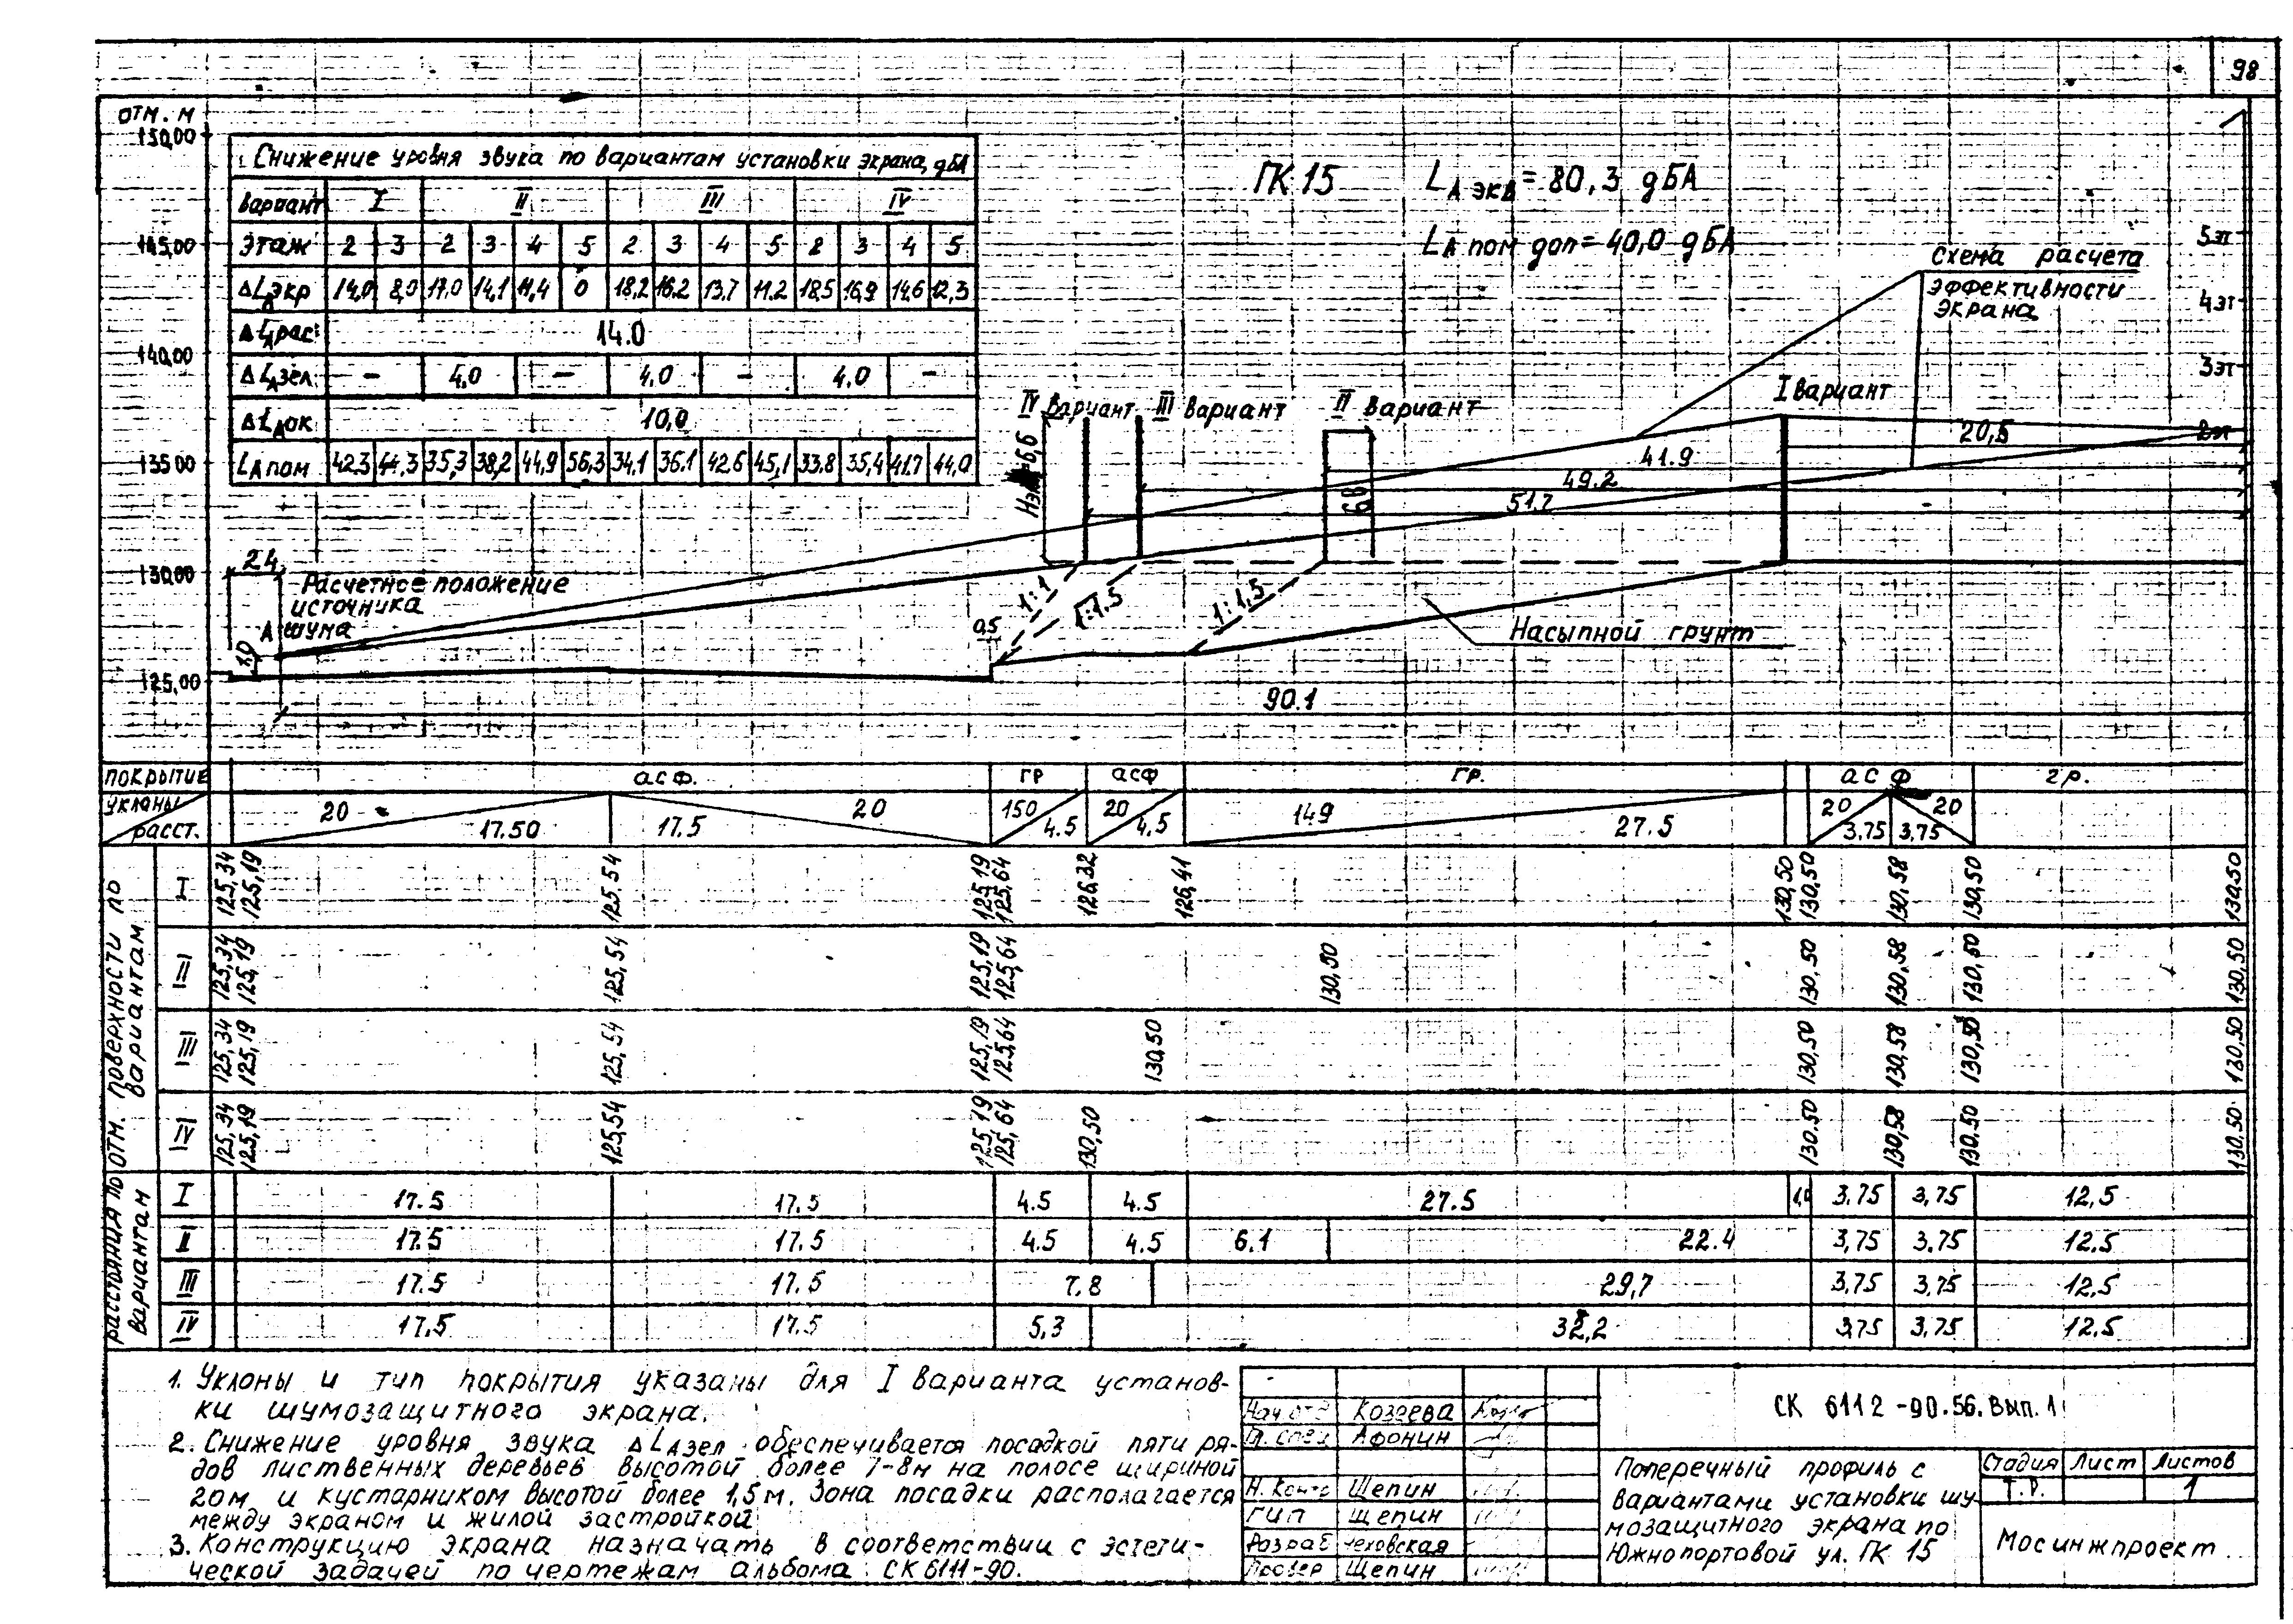 98
отм. м
150,00
145,00
140,00
135,00
130,00
125,00
Снижение уровня звука по вариантам установки экрана, дБА
вариант I II III IV
Этаж 2 3 2 3 4 5 2 3 4 5 2 3 4 5
ΔLAэкр 14,0 8,0 17,0 14,1 11,4 0 18,2 16,2 13,7 11,2 18,5 16,9 14,6 12,3
ΔLAрас 14.0
ΔLAзел. – 4,0 – 4,0 – 4,0 –
ΔLAок 10,0
LAпом 42.3 44,3 35,3 38,2 44,9 56,3 34,1 36.1 42.6 45,1 33.8 35,4 41.7 44,0
ПК 15
LA экв = 80,3 дБА
LA пом доп = 40,0 дБА
схема расчета
эффективности
экрана
5эт
4эт
3эт
2эт
IV вариант III вариант II вариант
I вариант
6,6
6,8
20,5
41.9
49.2
51.7
2.4
Расчетное положение
источника
шума
А
1,0
0,5
1:1
1:1.5
1:1,5
Насыпной грунт
90.1
покрытие асф. гр асф гр. асф гр.
уклоны
расст.
20 17.50 17.5 20 150 4.5 20 4.5 149 27.5 20 3.75 20 3.75
отм. поверхности по вариантам
I 125,34 125,19 125.54 125,19 125,64 126.32 126,41 130,50 130,50 130,58 130,50 130,50
II 125,34 125,19 125,54 125,19 125,64 130,50 130,50 130,58 130,50 130,50
III 125,34 125,19 125,54 125,19 125,64 130,50 130,50 130,58 130,50 130,50
IV 125,34 125,19 125,54 125,19 125,64 130,50 130.50 130,58 130,50 130,50
расстояния по вариантам
I 17.5 17.5 4.5 4.5 27.5 1,0 3,75 3,75 12,5
II 17.5 17.5 4.5 4.5 6.1 22.4 3,75 3,75 12.5
III 17.5 17.5 7,8 29,7 3,75 3,75 12,5
IV 17.5 17.5 5,3 32,2 3,75 3,75 12.5
1. Уклоны и тип покрытия указаны для I варианта установ-
ки шумозащитного экрана.
2. Снижение уровня звука ΔLAзел обеспечивается посадкой пяти ря-
дов лиственных деревьев высотой более 7-8м на полосе шириной
20м и кустарником высотой более 1,5м. Зона посадки располагается
между экраном и жилой застройкой
3. Конструкцию экрана назначать в соответствии с эстети-
ческой задачей по чертежам альбома СК 6111-90.
Нач отд Козеева
Гл. спец Афонин
Н. Контр Щепин
ГИП Щепин
Разраб Чеховская
Провер Щепин
СК 6112-90.56. Вып. 1
Поперечный профиль с
вариантами установки шу-
мозащитного экрана по
Южнопортовой ул. ПК 15
Стадия Лист Листов
Т.Р. 1
Мосинжпроект